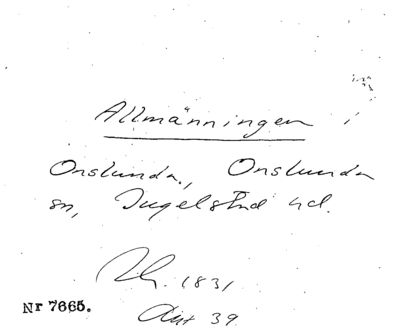 Allmänningen
Onslunda., Onslunda
sn, Ingelstad hd.
1831
Nr 7665.
Akt 39